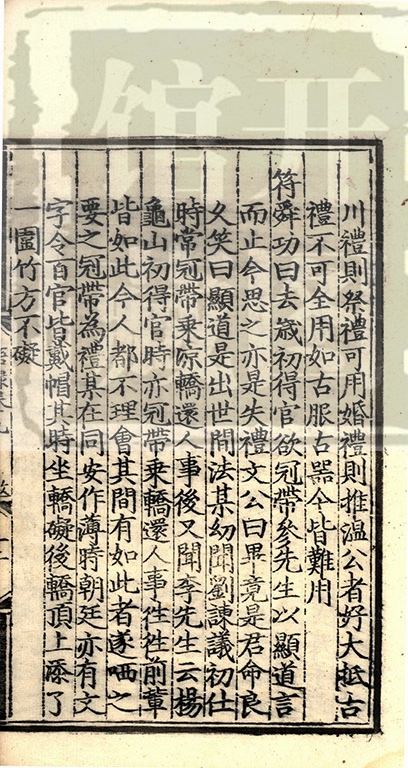 川禮則祭禮可用婚禮則推温公者好大抵古
禮不可全用如古服古器今皆難用
符舜功曰去歲初得官欲冠帶參先生以顯道言
而止今思之亦是失禮文公曰畢竟是君命良
久笑曰顯道是出世間法某幼聞劉諫議初仕
時常冠帶乗凉轎還人事後又聞李先生云楊
龜山初得官時亦冠帶乗轎還人事徃徃前輩
皆如此今人都不理會其間有如此者遂哂之
要之冠帶為禮某在同安作薄時朝廷亦有文
字令百官皆戴帽其時坐轎礙後轎頂上添了
一團竹方不礙